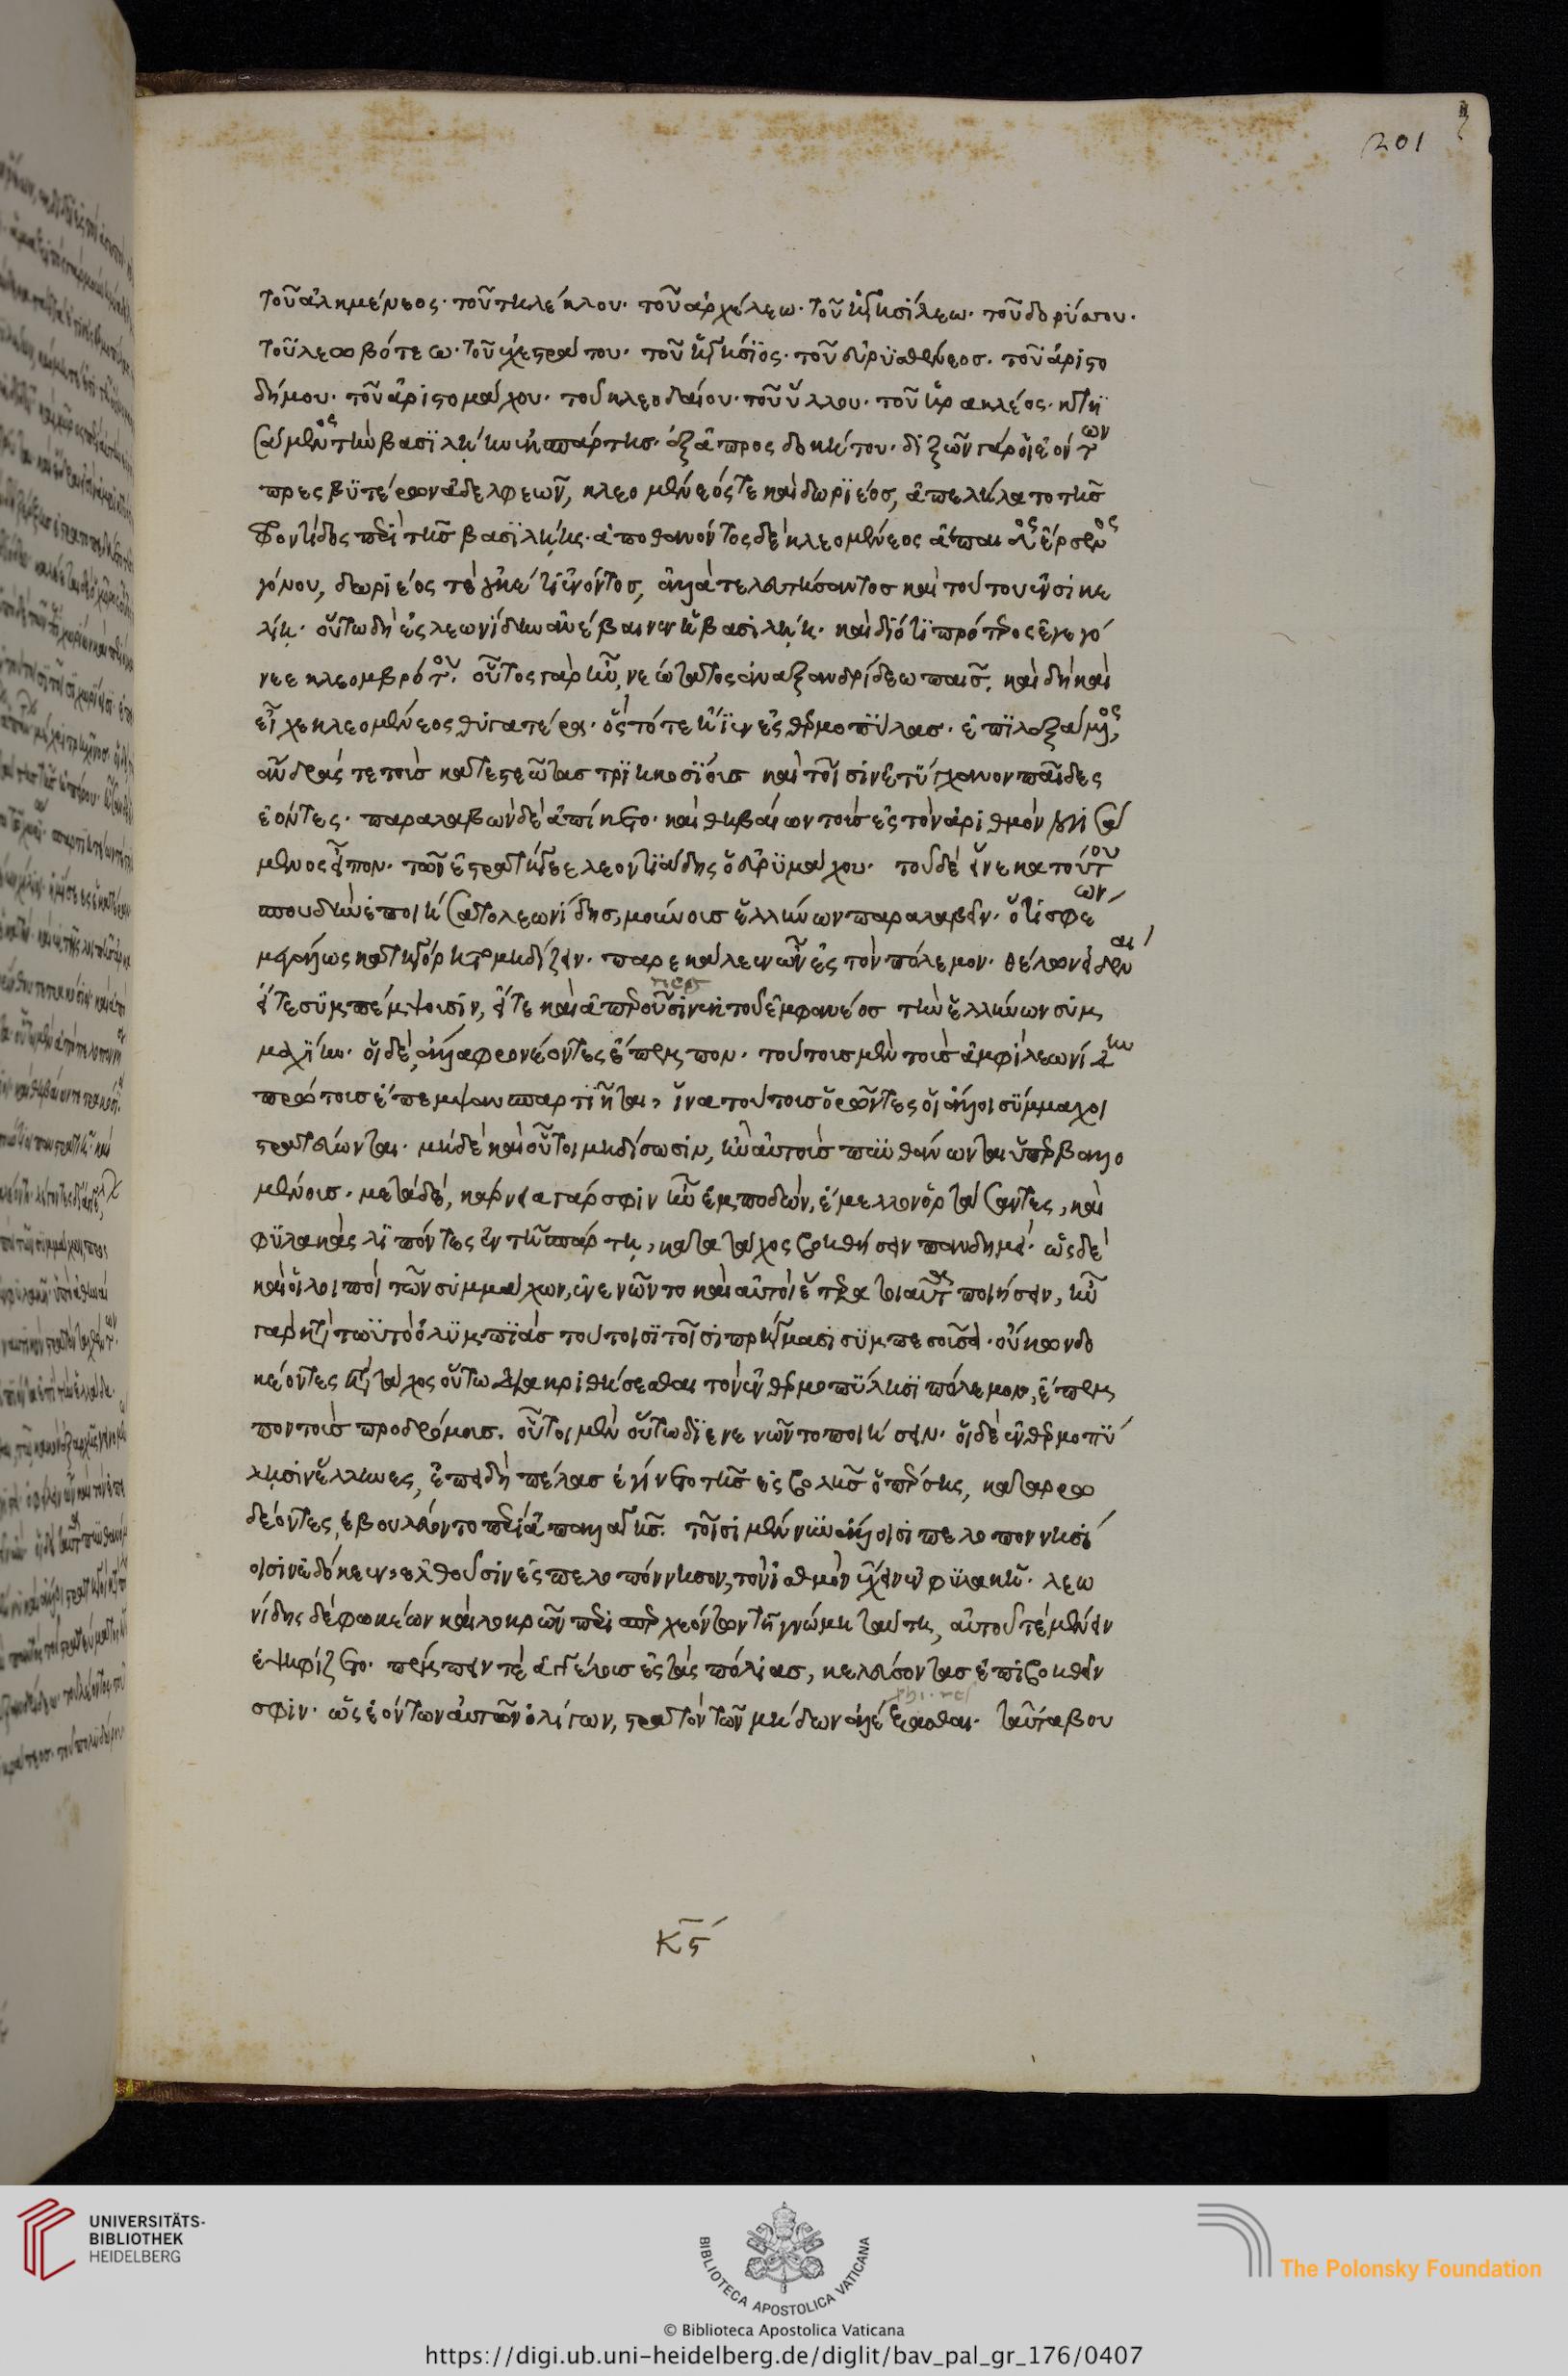 201
τοῦ ἀλκμένεος· τοῦ τηλέκλου· τοῦ ἀρχέλεω· τοῦ ἡγησίλεω· τοῦ δορύσσου·
τοῦ λεωβότεω· τοῦ ἐχεστράτου· τοῦ ἤγησϊος· τοῦ εὐρϋσθένεος· τοῦ ἀριστο
δήμου· τοῦ ἀριστομάχου· τοῦ κλεοδαίου· τοῦ ὕλλου· τοῦ ἡρακλέος· κτη
σάμενος τὴν βασϊληΐην ἐν σπάρτῃ· ἐξ ἀπροσδοκήτου· διξῶν γάρ οἱ ἐόντων
πρεσβϋτέρων ἀδελφεῶν, κλεομένεός τε καὶ δωριέος, ἀπελήλατο τῆς
φροντίδος περὶ τῆς βασϊληΐης· ἀποθανόντος δὲ κλεομένεος ἄπαιδος ἔρσενος
γόνου, δωριέος τε οὐκέτι ἐόντος, ἀλλὰ τελευτήσαντος καὶ τούτου ἐν σικε
λίῃ· οὕτω δὴ ἐς λεωνίδην ἀνέβαινεν ἡ βασιληΐη· καὶ διότι πρότερος ἐγεγό
νεε κλεομβρότου· οὗτος γὰρ ἦν νεώτατος ἀναξανδρίδεω παῖς. καὶ δὴ καὶ
εἶχε κλεομένεος θυγατέρα· ὃς τότε ἤϊεν ἐς θερμοπύλας· ἐπϊλεξάμενος
ἄνδρας τε τοὺς κατεστεῶτας τρϊηκοσϊους καὶ τοῖσιν ἐτύγχανον παῖδες
ἐόντες· παραλαβὼν δὲ ἀπίκετο· καὶ θηβαίων τοὺς ἐς τὸν ἀριθμὸν λογισά
μενος εἶπον· τῶν ἐστρατήγεε λεοντϊάδης ὁ εὐρϋμάχου· τοῦδε εἵνεκα τούτους
σπουδὴν ἐποιήσατο λεωνίδης, μούνους ἑλλήνων παραλαβεῖν· ὅτι σφέων
μεγάλως κατηγόρητο μηδίζειν· παρεκάλεε ὦν ἐς τὸν πόλεμον· θέλων εἰδέναι
εἴτε συμπέμψουσιν, εἴτε καὶ ἀπερέουσιν ἐκ τοῦ ἐμφανέος τὴν ἑλλήνων συμ
μαχίην· οἱ δὲ, ἀλλὰ φρονέοντες ἔπεμπον· τούτους μὲν τοὺς ἀμφὶ λεωνίδην
πρώτους ἔπεμψαν σπαρτιῆται, ἵνα τούτους ὁρῶντες οἱ ἄλλοι σύμμαχοι
στρατεύωνται· μηδὲ καὶ οὗτοι μηδίσωσιν, ἢν αὐτοὺς πυνθάνωνται ὑπερβαλλο
μένους· μετὰ δὲ, κάρνεια γάρ σφιν ἦν ἐμποδὼν, ἔμελλον ὁρτάσαντες, καὶ
φύλακὰς λιπόντες ἐν τῇ σπάρτῃ, κατὰ τάχος βοηθήσειν πανδημεί· ὣς δὲ
καὶ οἱ λοιποὶ τῶν συμμάχων, ἐνενῶντο καὶ αὐτοὶ ἕτερα τοιαῦτα ποιήσειν, ἦν
γὰρ κατὰ τὠϋτὸ ὀλϋμπϊὰς τούτοισϊ τοῖσι πρήγμασι συμπεσοῦσα· οὔκων δο
κέοντες κατὰ τάχος οὕτω διακριθήσεσθαι τὸν ἐν θερμοπύλῃσϊ πόλεμον, ἔπεμ
πον τοὺς προδρόμους· οὗτοι μὲν οὕτω διενενῶντο ποιήσειν· οἱ δὲ ἐν θερμοπύ
λῃσιν ἕλληνες, ἐπειδὴ πέλας ἐγίνετο τῆς ἐσβολῆς ὁ πέρσης, καταρρω
δέοντες, ἐβουλεύοντο περὶ ἀπαλλαγῆς. τοῖσι μέν νυν ἄλλοισι πελοποννησί
οισιν ἐδόκεεν, ἐλθοῦσιν ἐς πελοπόννησον, τὸν ἰσθμὸν ἔχειν ἐν φυλακῇ· λεω
νίδης δὲ φωκέων καὶ λοκρῶν περισπερχεόντων τῇ γνώμῃ ταύτῃ, αὐτοῦ τε μένειν
ἐψηφίζετο· πέμπειν τε ἀγγέλους ἐς τὰς πόλιας, κελεύοντας ἐπιβοηθεῖν
σφιν· ὡς ἐόντων αὐτῶν ὀλίγων, στρατὸν τῶν μήδων ἀλέξασθαι· ταῦτα βου
κϛ
UNIVERSITÄTS-
BIBLIOTHEK
HEIDELBERG
BIBLIOTECA APOSTOLICA VATICANA
The Polonsky Foundation
© Biblioteca Apostolica Vaticana
https://digi.ub.uni-heidelberg.de/diglit/bav_pal_gr_176/0407